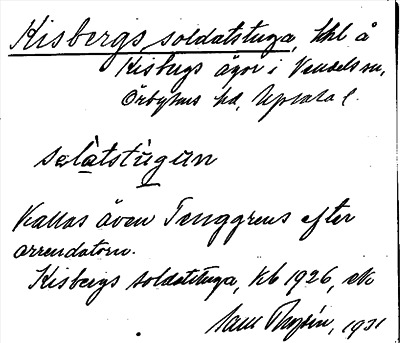 Kisbergs soldatstuga, lhl å
Kisbergs ägor i Vendels sn,
Örbyhus hd, Uppsala l.
sɑlàtstùgun
Kallas även Tenggrens efter
arrendatorn.
Kisbergs soldatstuga, kb 1926, ek
1931